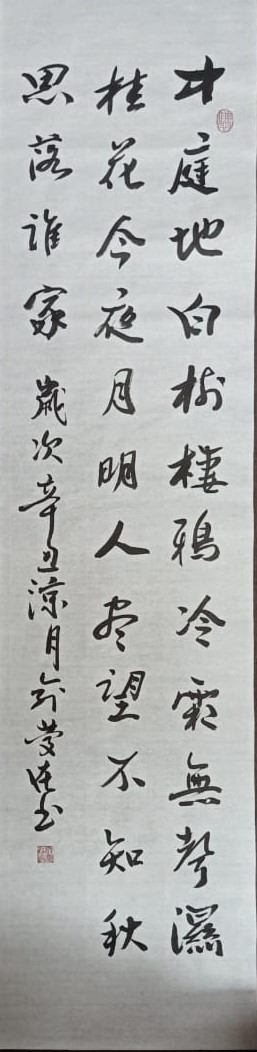 中庭地白樹棲鴉冷露無聲濕
桂花今夜月明人盡望不知秋
思落誰家 歲次辛丑涼月書